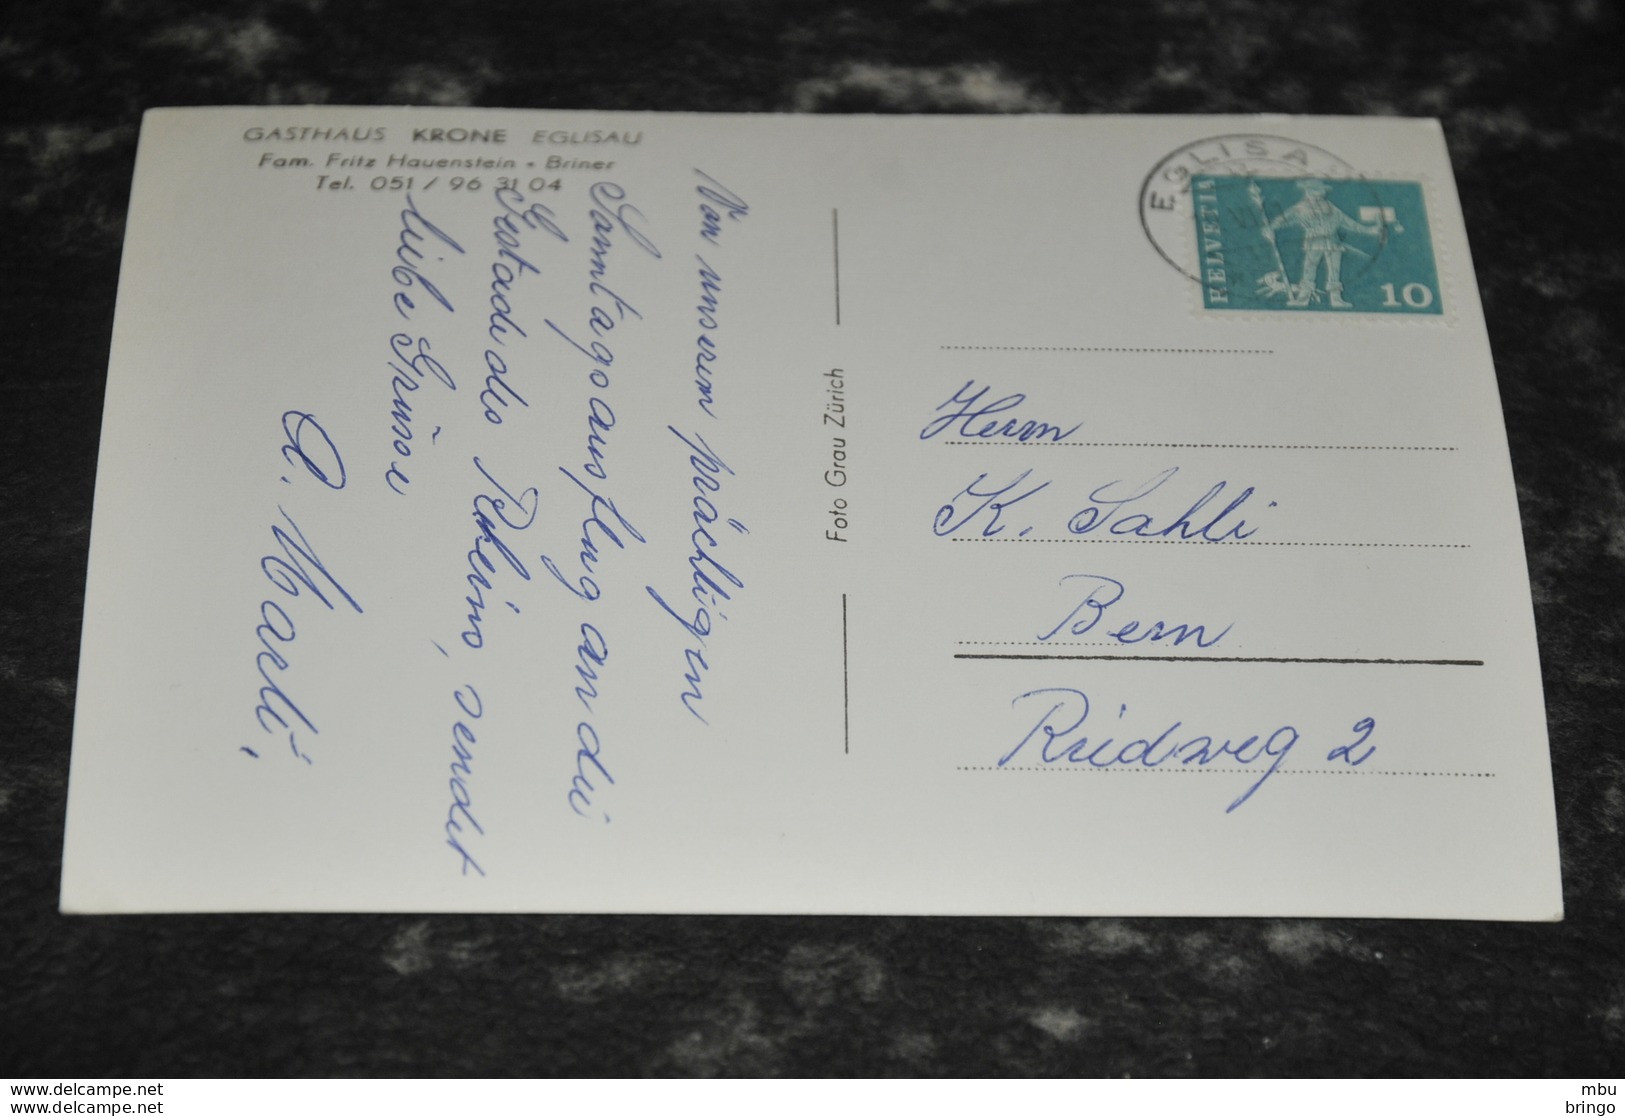 GASTHAUS KRONE EGLISAU
Fam. Fritz Hauenstein - Briner
Tel. 051 / 96 31 04
Von unserem prächtigen
Sonntagsausflug an die
Gestade des Rheins, sendet
liebe Grüsse
A. Marti,
Foto Grau Zürich
EGLISAU
HELVETIA
10
Herrn
K. Sahli
Bern
Riedweg 2
www.delcampe.net
www.delcampe.net
mbu
bringo